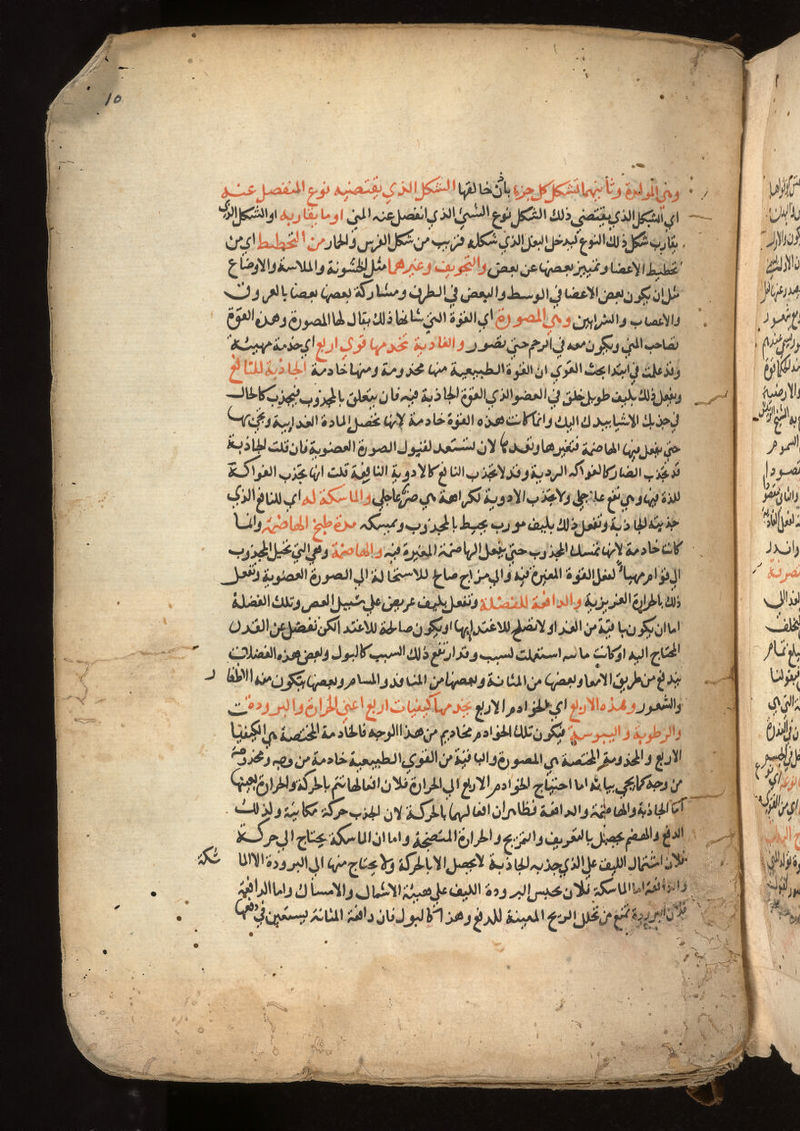 10
وهي المولدة وثانيهما تشكل كل جزء بان خالقها الشكل الذي يقتضيه نوع المنفصل عنه
اي الشكل الذي يقتضي ذلك الشكل نوع الشئ الذي انفصل عنه المني او ما يقاربه او الشكل الذي
يقارب شكل ذلك النوع ليدخل البغل الذي شكله قريب من شكل الفرس والحمار من التخطيط اي من
تخطيط الاعضا وتمييز بعضها عن بعض والتجويف وغيرهما مثل الخشونة والملاسة والاوضاع
مثل ان يكون بعض الاعضا في الوسط والبعض في الطرف ومشاركة بعضها بعضا بالعروق
والاعصاب والشرايين وهي المصورة اي القوة التي شانها ذلك يقال لها المصورة وهذه القوة
تصاحب المني ويكون معه في الرحم حتى يتصور والغاذية تخدمها قوي اربع اي خدمة مهيئة
وقد علمت في ابتدا بحث القوي ان القوة الطبيعية منها مخدومة ومنها خادمة الجاذبة للنافع
ويفعل ذلك بليف طويل خلق في العضو الذي القوة الجاذبة فيه فان يتعلق بالمجذوب فيجذب كالحال
في جذبك الاشيا بيدك اليك وانما كانت هذه القوة خادمة لانها تحصل المادة الغذايية وتجئ بها
حتى يفعل فيها الهاضمة فتغيرها وتعدها لان تستعد لقبول الصورة العضوية فان قلت الجاذبة
قد تجذب الضار كالفواكه الردية وقد لا تجذب النافع كالادوية النافعة قلت انها تجذب الفواكه
للذة فيها وهي نفع عاجلي ولا تجذب الادوية لكراهة هي ضر عاجلي والماسكة له اي للنافع الذي
جذبته الجاذبة وتفعل ذلك بليف مورب يحيط بالمجذوب ويمسكه مدة طبخ الهاضمة وانما
كانت خادمة لانها تمسك المجذوب حتى يفعل الهاضمة المغيرة فيه والهاضمة وهي التي تحيل المجذوب
الي قوام مهيا لفعل القوة المغيرة فيه والي مزاج صالح للاستحالة الي الصورة العضوية وتفعل
ذلك بالحرارة الغريزية والدافعة للفضلة وتفعل بليف عريض علي سبيل العصر وتلك الفضلة
اما ان يكون باقية من الغذا ولا تصلح للاغتذا بها او يكون صالحة للاغتذا لكن تفضل عن القدر
المحتاج اليه او كانت استعملت لسبب وقد ارتفع ذلك السبب كالبول وبعض هذه الفضلات
يندفع من طريق الامعا وبعضها من المثانة وبعضها من المنافذ والمسام وبعضها يتكون منه الاظفار
والشعور وهذه الاربع اي الخوادم الاربع يخدمها كيفيات اربع اعني الحرارة والبرودة
والرطوبة واليبوسة فيكون تلك الخوادم مخاديم من هذا الوجه فالخادمة المختصة هي الكيفيات
الاربع والمخدومة المختصة هي المصورة والباقية من القوي الطبيعية خادمة من وجه ومخدومة
من وجه كما يجي بيانه اما احتياج الخوادم الاربع الي الحرارة فلان افعالها تتم بالحركة والحرارة تعينها
اما الجاذبة والهاضمة والدافعة فظاهر ان افعالها بالحركة لان الجذب حركة مكانية وكذلك
الدفع والهضم يحصل بالتفريق والتمزيج والحرارة المنضجة واما ان الماسكة يحتاج الي حركة
فلان اشتمال الليف علي الذي جذبه الجاذبة لا يحصل الا بالحركة ولا يحتاج منها الي البرودة الا الماسكة
والدافعة اما الماسكة فلان يحبس البرودة الليف علي هيئة الاشتمال والامساك واما الدافعة
فلان البرودة تمنع من تحلل الريح المعينة للدفع وهذا كالبول فان دافعة المثانة يستعين في دفعها